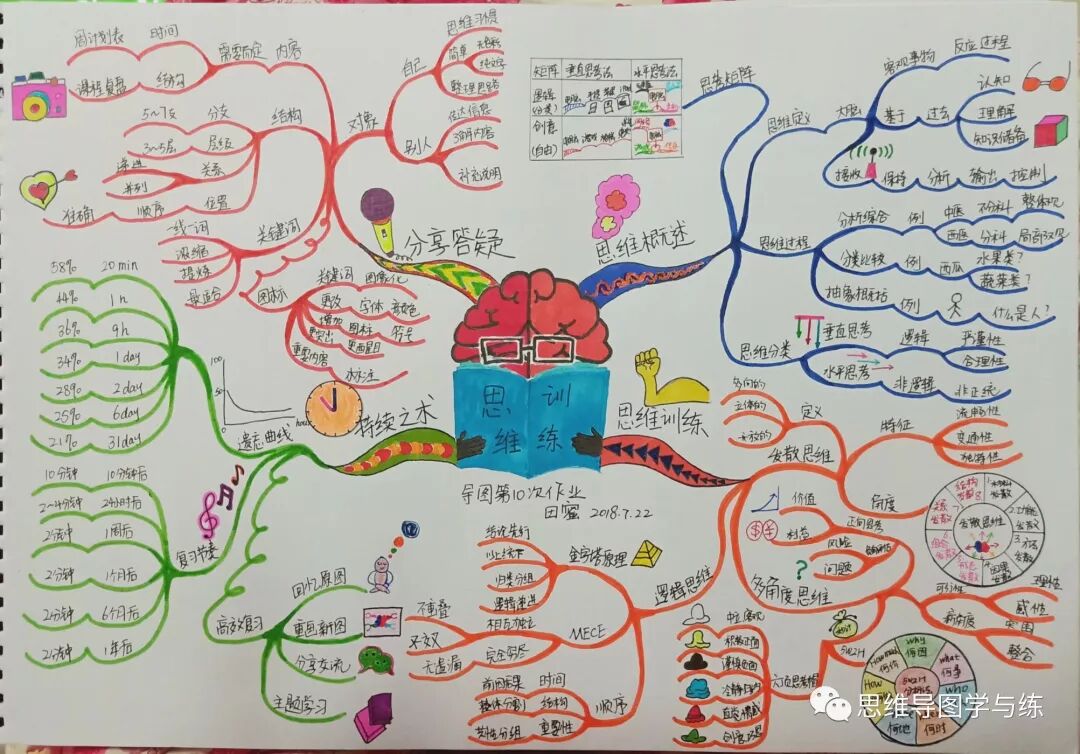 思维训练
导图第10次作业
田蜜 2018.7.22
思维概述
思考矩阵
矩阵 垂直思考法 水平思考法
逻辑
(分类)
创意
(自由)
思维定义
大脑
客观事物
反应过程
基于
过去
认知
理解
知识储备
接收 保持 分析 输出 控制
思维过程
分析综合 例 中医 不分科 整体观
西医 分科 局部观
分类比较 例 西瓜 水果类?
蔬菜类?
抽象概括 例 什么是人?
思维分类
垂直思考 逻辑 严谨性
合理性
水平思考 非逻辑 非正统
思维训练
发散思维
定义
多向的
立体的
开放的
特征
流畅性
变通性
独特性
角度
发散思维
结构发散
功能发散
方法发散
因果发散
组合发散
多角度思维
价值
利益
正向思考
风险
问题
可行性
新角度
理性
感性
突围
整合
5W2H
5W2H分析法
Why 何因
What 何事
Who
何时
何地
How
How much 何价
六顶思考帽
中立客观
积极正面
谨慎负面
冷静归纳
直觉情感
创意巧思
逻辑思维
金字塔原理
结论先行
以上统下
归类分组
逻辑递进
MECE
相互独立
不重叠
完全穷尽
无遗漏
顺序
时间
前因后果
结构
整体分割
重要性
类性分组
持续之术
遗忘曲线
100
50
hour
58% 20min
44% 1h
36% 9h
34% 1day
28% 2day
25% 6day
21% 31day
复习节奏
10分钟 10分钟后
2~4分钟 24小时后
2分钟 1周后
2分钟 1个月后
2分钟 6个月后
2分钟 1年后
高效复习
回忆原图
重画新图
分享交流
主题学习
分享答疑
对象
自己
思维习惯
简单
整理思路
别人
传达信息
了解内容
补充说明
需要而定 内容
时间
周计划表
结构
课程复盘
结构
5~7支 分支
3~5层 层级
递进
并列
关系
准确 顺序 位置
关键词
一线一词
浓缩
提炼
最适合
图标
关键词 图像化
更改 字体 颜色
增加 图标 符号
更突出 更醒目
重要内容
标注
思维导图学与练